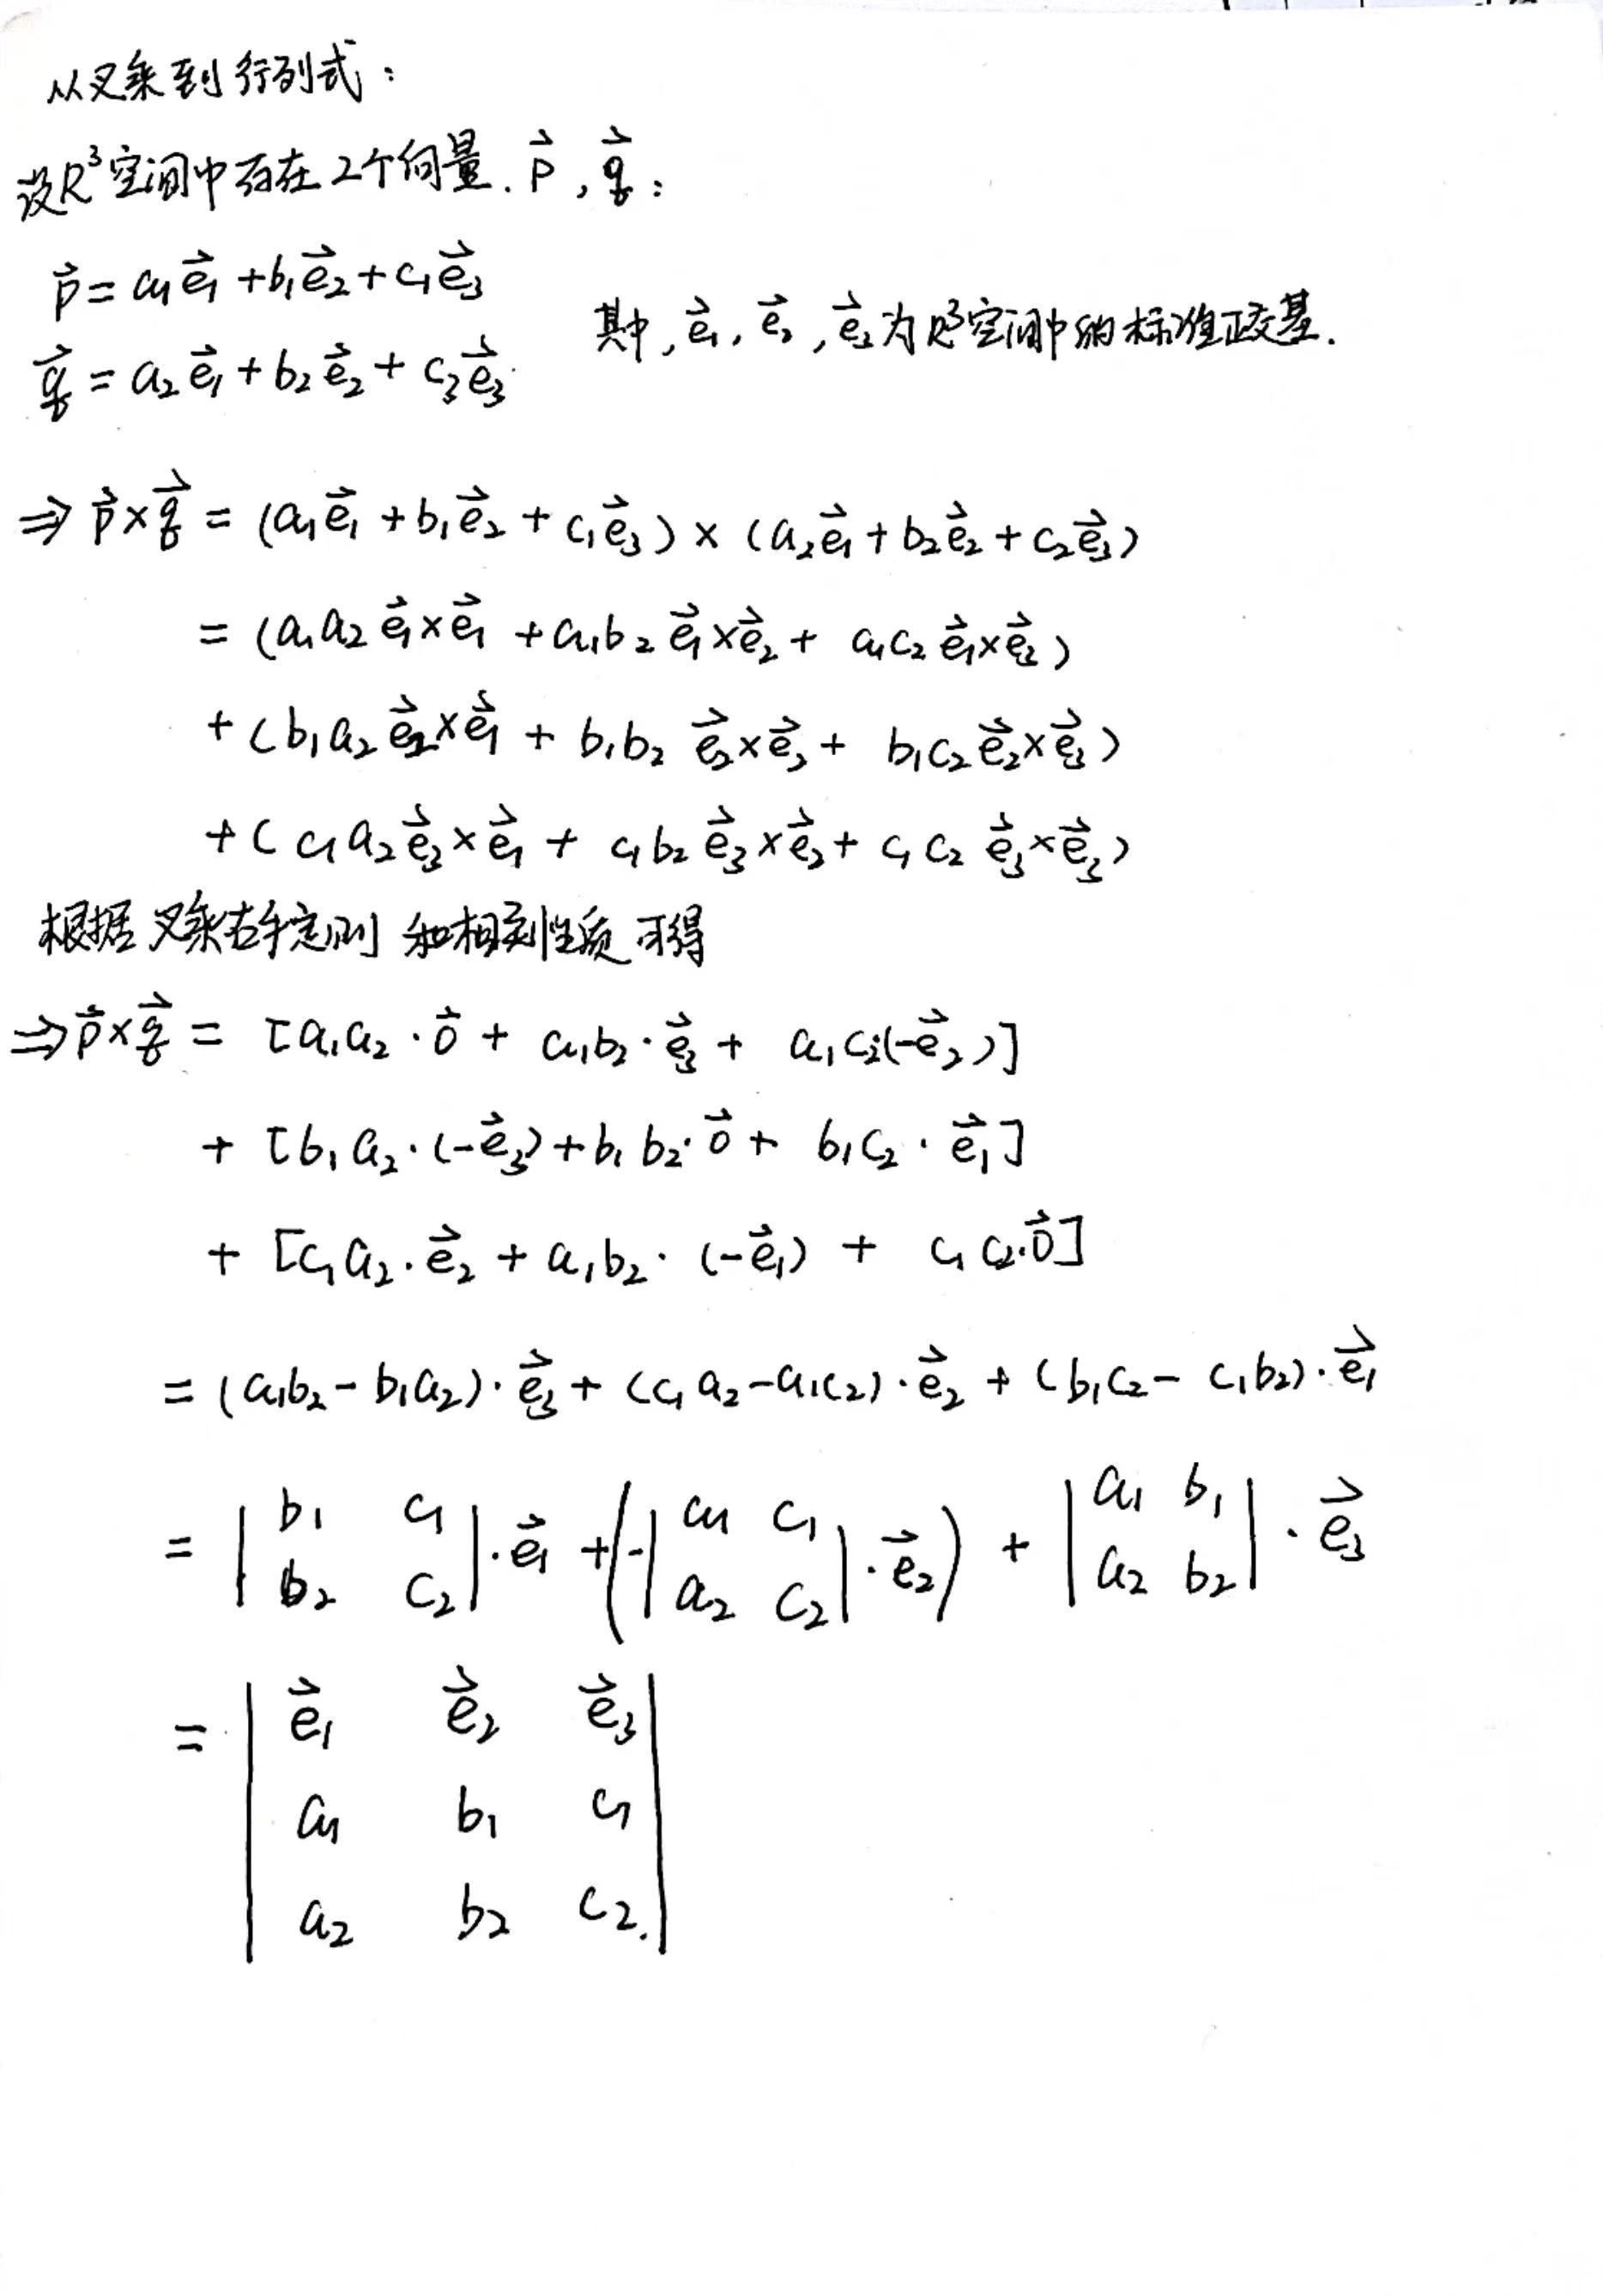 从叉乘到行列式：
设R³空间中存在2个向量. p⃗, q⃗:
p⃗ = a₁e⃗₁ + b₁e⃗₂ + c₁e⃗₃
其中, e⃗₁, e⃗₂, e⃗₃为R³空间中的标准正交基.
q⃗ = a₂e⃗₁ + b₂e⃗₂ + c₂e⃗₃
⇒ p⃗×q⃗ = (a₁e⃗₁ + b₁e⃗₂ + c₁e⃗₃) × (a₂e⃗₁ + b₂e⃗₂ + c₂e⃗₃)
= (a₁a₂ e⃗₁×e⃗₁ + a₁b₂ e⃗₁×e⃗₂ + a₁c₂ e⃗₁×e⃗₃)
+ (b₁a₂ e⃗₂×e⃗₁ + b₁b₂ e⃗₂×e⃗₂ + b₁c₂ e⃗₂×e⃗₃)
+ (c₁a₂ e⃗₃×e⃗₁ + c₁b₂ e⃗₃×e⃗₂ + c₁c₂ e⃗₃×e⃗₃)
根据叉乘右手定则和相关性质可得
⇒ p⃗×q⃗ = [a₁a₂·0⃗ + a₁b₂·e⃗₃ + a₁c₂·(-e⃗₂)]
+ [b₁a₂·(-e⃗₃) + b₁b₂·0⃗ + b₁c₂·e⃗₁]
+ [c₁a₂·e⃗₂ + a₁b₂·(-e⃗₁) + c₁c₂·0⃗]
= (a₁b₂ - b₁a₂)·e⃗₃ + (c₁a₂ - a₁c₂)·e⃗₂ + (b₁c₂ - c₁b₂)·e⃗₁
= |b₁ c₁; b₂ c₂|·e⃗₁ + (-|a₁ c₁; a₂ c₂|·e⃗₂) + |a₁ b₁; a₂ b₂|·e⃗₃
= | e⃗₁ e⃗₂ e⃗₃ |
| a₁ b₁ c₁ |
| a₂ b₂ c₂. |